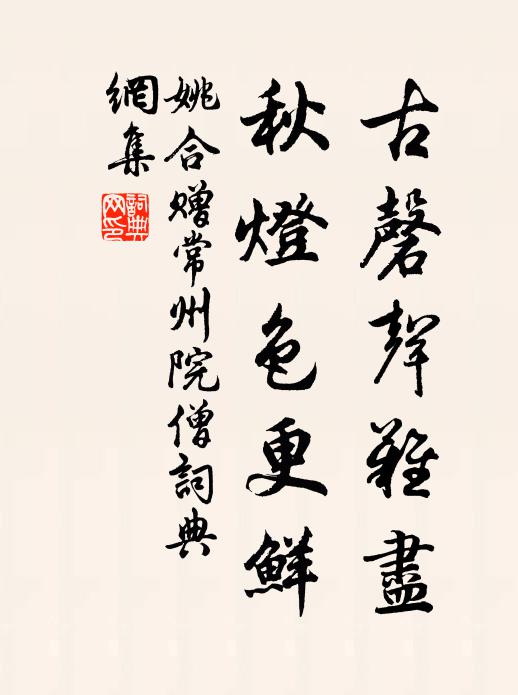 古磬聲難盡
秋燈色更鮮
姚合贈常州院僧詞典
網集
詞典
网印